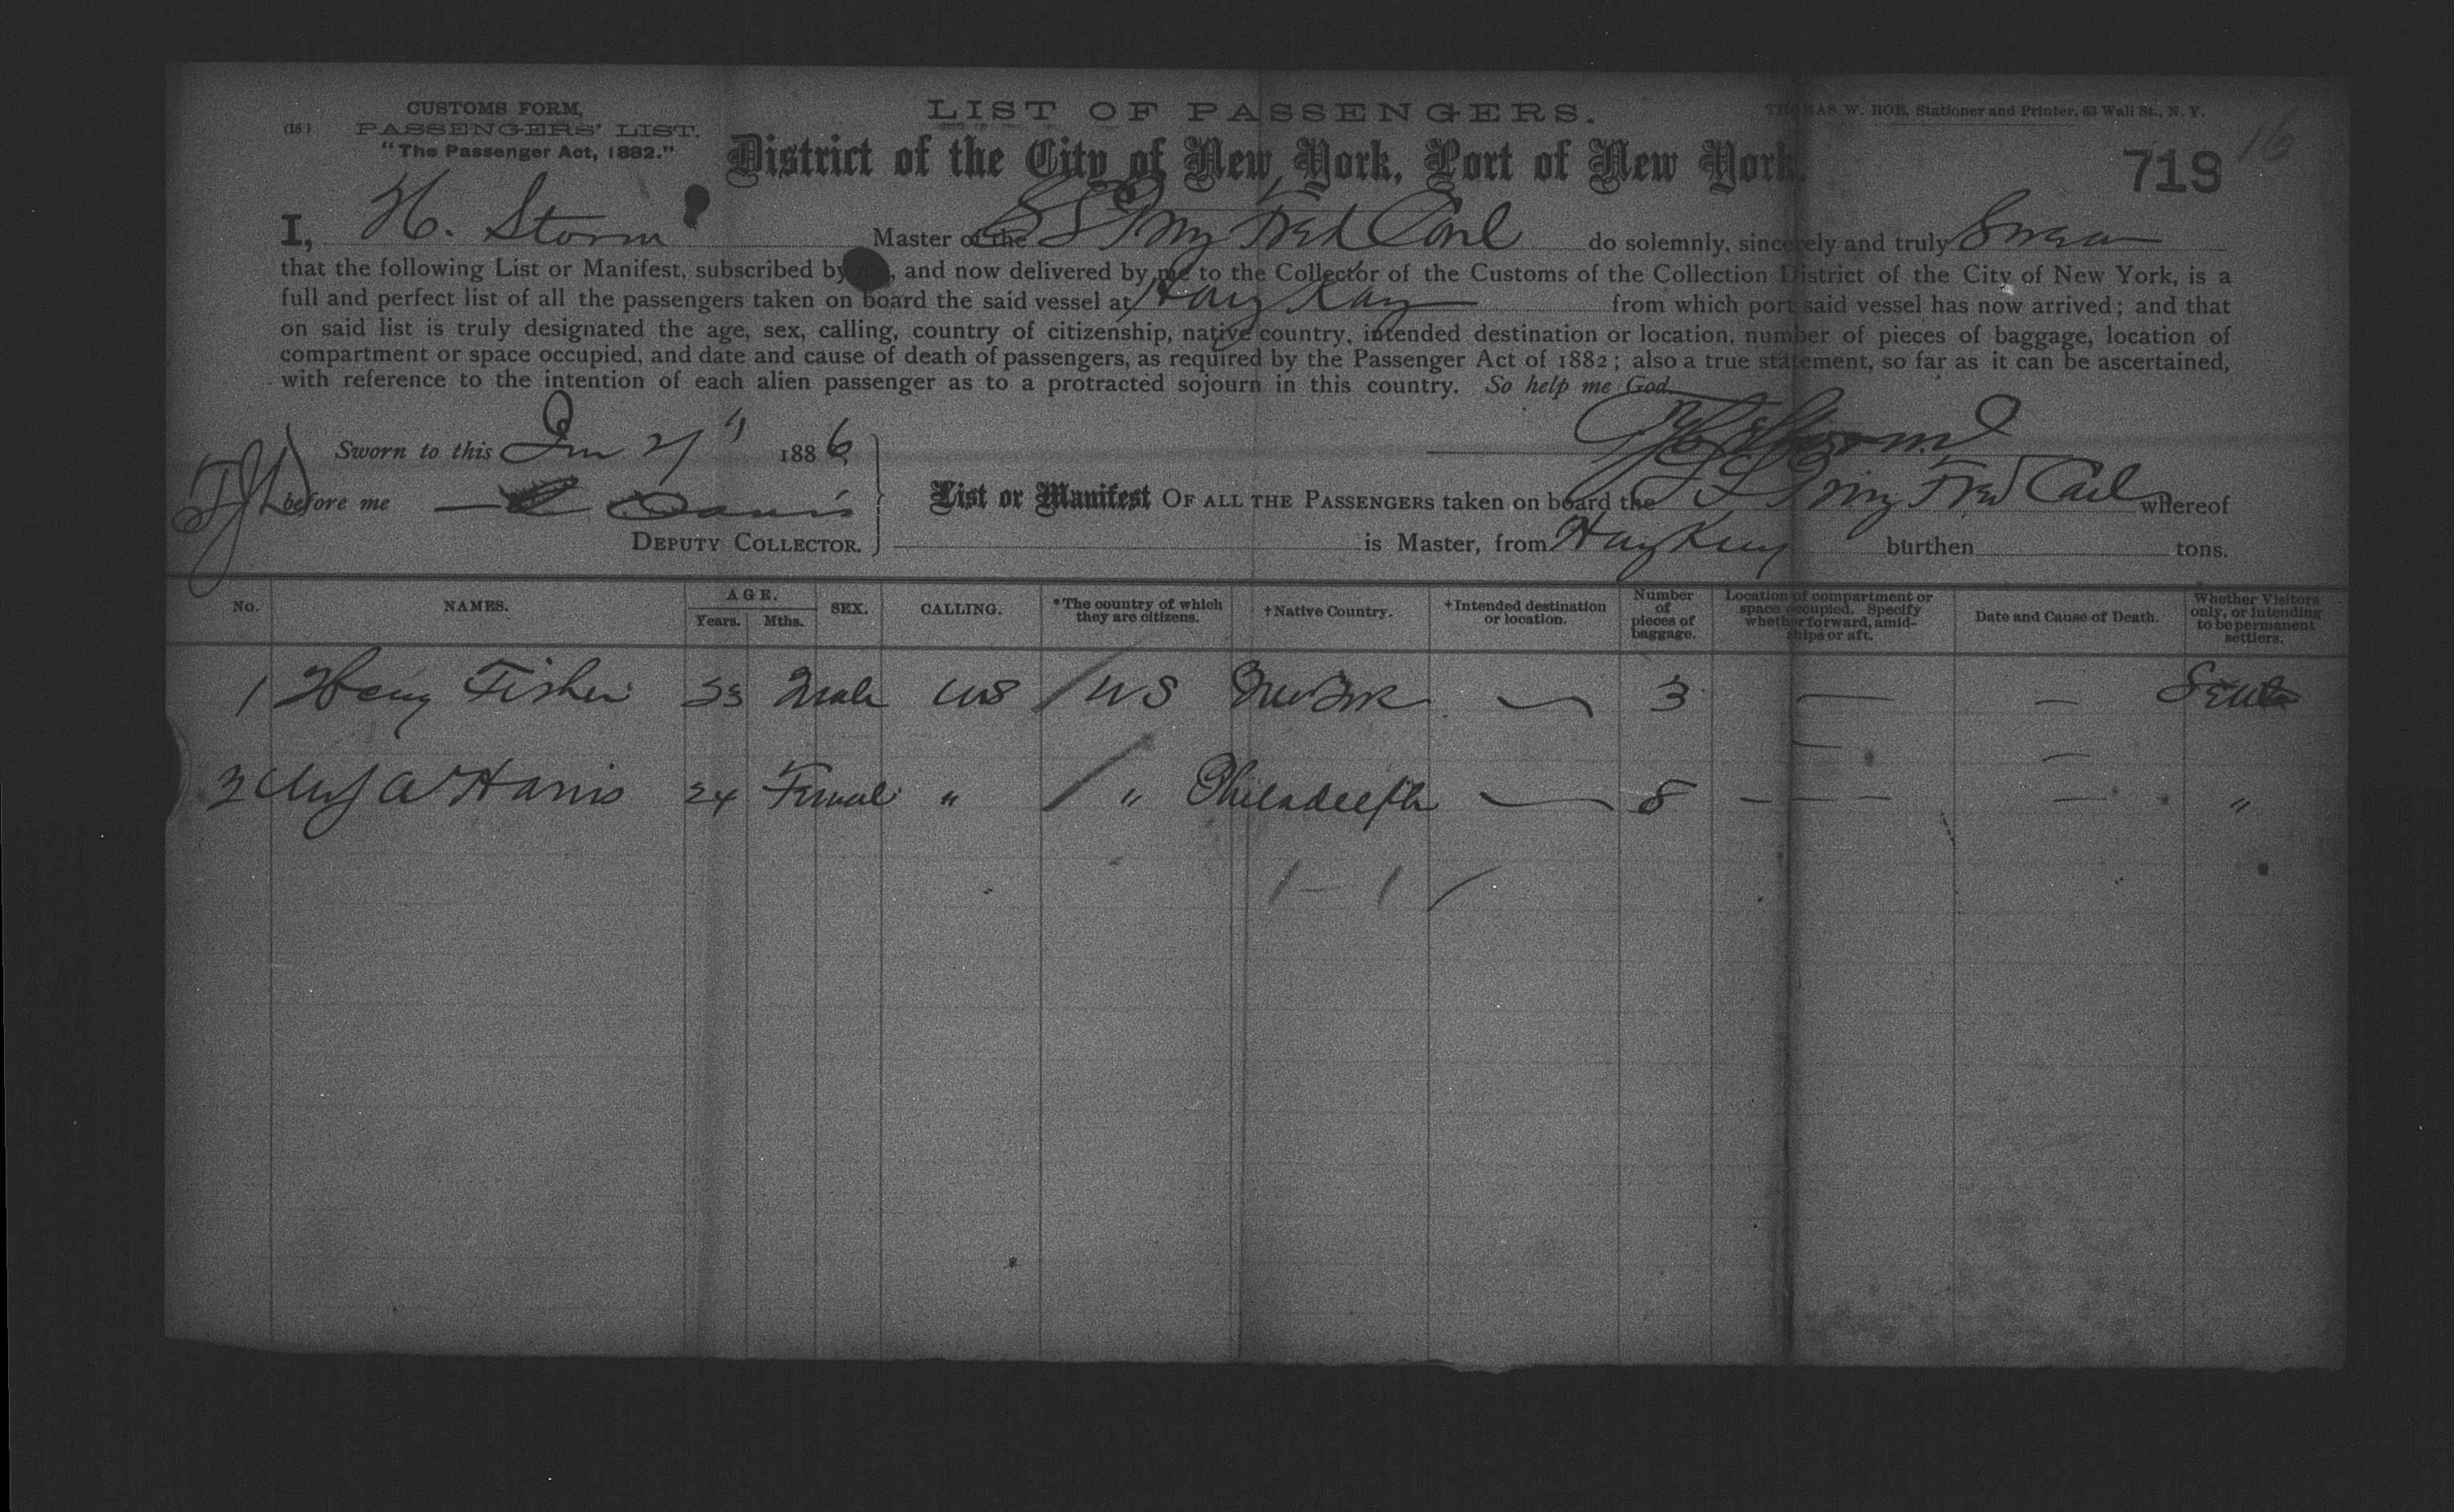 CUSTOMS FORM,
(18.) PASSENGERS' LIST.
"The Passenger Act, 1882."
LIST OF PASSENGERS.
THOMAS W. ROE, Stationer and Printer, 63 Wall St., N. Y.
16
District of the City of New York, Port of New York.
719
I, H. Storm Master of the SS Prinz Fred Carl do solemnly, sincerely and truly Swear
that the following List or Manifest, subscribed by , and now delivered by me to the Collector of the Customs of the Collection District of the City of New York, is a
full and perfect list of all the passengers taken on board the said vessel at Hong Kong from which port said vessel has now arrived; and that
on said list is truly designated the age, sex, calling, country of citizenship, native country, intended destination or location, number of pieces of baggage, location of
compartment or space occupied, and date and cause of death of passengers, as required by the Passenger Act of 1882; also a true statement, so far as it can be ascertained,
with reference to the intention of each alien passenger as to a protracted sojourn in this country. So help me God.
Sworn to this 1886 H. Storm
before me Davis
DEPUTY COLLECTOR.
List or Manifest OF ALL THE PASSENGERS taken on board the SS Prinz Fred Carl whereof
is Master, from Hong Kong burthen tons.
No. NAMES. AGE. Years. Mths. SEX. CALLING. *The country of which they are citizens. †Native Country. †Intended destination or location. Number of pieces of baggage. Location of compartment or space occupied. Specify whether forward, amidships or aft. Date and Cause of Death. Whether Visitors only, or intending to be permanent settlers.
1 Henry Fisher 33 Male US US New York — 3 — —
2 Mrs A Harris 24 Female " " Philadelpha — 8 — — "
1 - 1